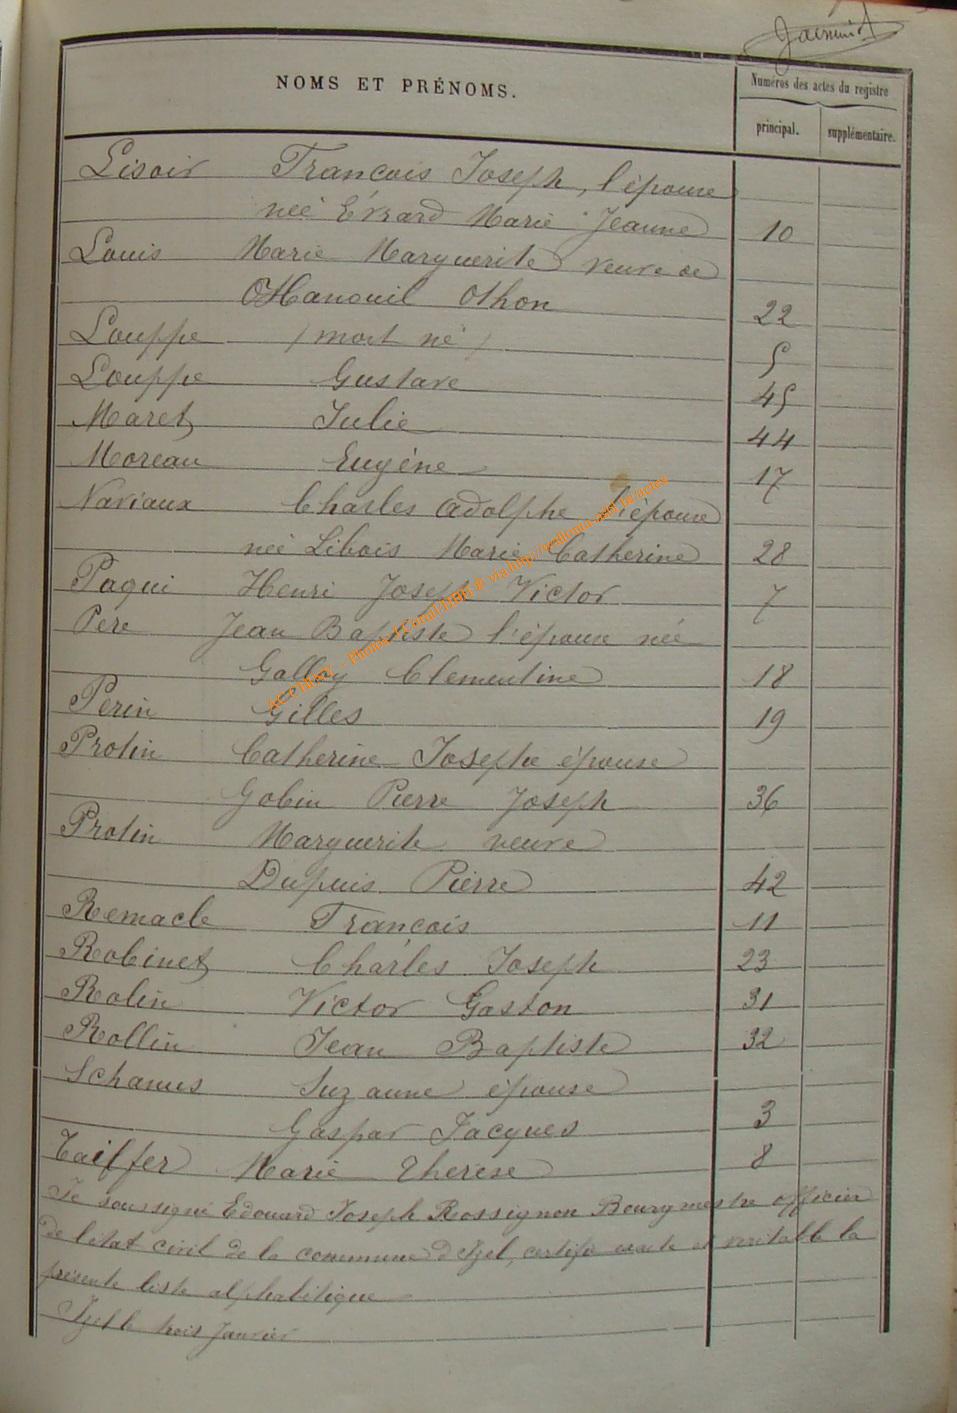 NOMS ET PRÉNOMS.
Numéros des actes du registre
principal. supplémentaire.
Lisoir François Joseph, l'épouse
née Évrard Marie Jeanne 10
Louis Marie Marguerite veuve de
Othon 22
Louppe (mort né) 5
Louppe Gustave 45
Maret Julie 44
Moreau Eugène 17
Naviaux Charles Adolphe l'épouse
née Libois Marie Catherine 28
Paqui Henri Joseph Victor 7
Pere Jean Baptiste l'épouse née
Galley Clementine 18
Perin Gilles 19
Protin Catherine Josephe épouse
Gobin Pierre Joseph 36
Protin Marguerite veuve
Dupuis Pierre 42
Remacle François 11
Robinet Charles Joseph 23
Rolin Victor Gaston 31
Rollin Jean Baptiste 32
Schanus Suzanne épouse
Gaspar Jacques 3
Taiffer Marie Therese 8
Je soussigné Edouard Joseph Rossignon Bourgmestre officier
de l'état civil de la commune d'Izel, certifie exacte et veritable la
présente liste alphabétique
Izel le trois Janvier